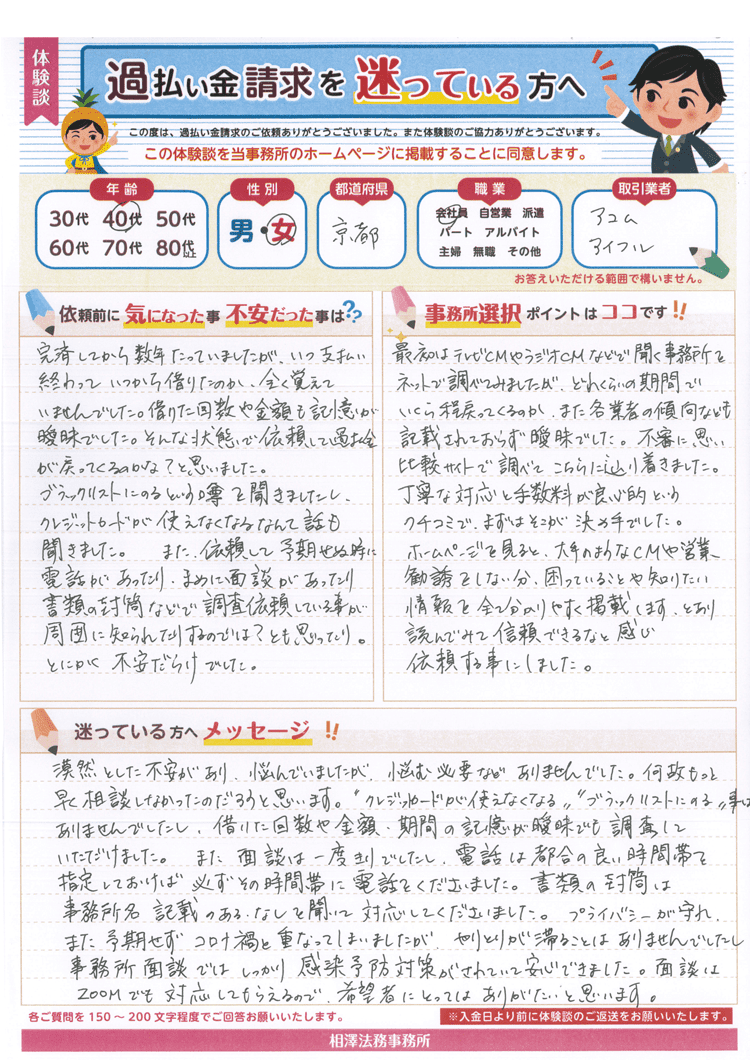 体験談
過払い金請求を 迷っている 方へ
この度は、過払い金請求のご依頼ありがとうございました。また体験談のご協力ありがとうございます。
この体験談を当事務所のホームページに掲載することに同意します。
年齢
30代 40代 50代
60代 70代 80代以上
性別
男・女
都道府県
京都
職業
会社員 自営業 派遣
パート アルバイト
主婦 無職 その他
取引業者
アコム
アイフル
お答えいただける範囲で構いません。
依頼前に 気になった事 不安だった事は??
完済してから数年たっていましたが、いつ支払い
終わって いつから借りたのか、全く覚えて
いませんでした。借りた回数や金額も記憶が
曖昧でした。そんな状態で依頼して過払金
が戻ってくるのかな?と思いました。
ブラックリストにのるという噂を聞きましたし、
クレジットカードが使えなくなるなんて話も
聞きました。 また、依頼して予期せぬ時に
電話があったり、まめに面談があったり
書類の封筒などで調査依頼している事が
周囲に知られたりするのでは?とも思ったり。
とにかく 不安だらけでした。
事務所選択 ポイントは ココです!!
最初はテレビCMやラジオCMなどで聞く事務所を
ネットで調べてみましたが、どれくらいの期間で
いくら程戻ってくるのか、また各業者の傾向なども
記載されておらず曖昧でした。不審に思い
比較サイトで調べて こちらに辿り着きました。
丁寧な対応と手数料が良心的という
クチコミで、まずはそこが決め手でした。
ホームページを見ると、大手のようなCMや営業
勧誘をしない分、困っていることや知りたい
情報を全て分かりやすく掲載します、とあり
読んでみて信頼できるなと感じ
依頼する事にしました。
迷っている 方へ メッセージ !!
漠然とした不安があり、悩んでいましたが、悩む必要などありませんでした。何故もっと
早く相談しなかったのだろうと思います。"クレジットカードが使えなくなる""ブラックリストにのる"事は
ありませんでしたし、借りた回数や金額・期間の記憶が曖昧でも調査して
いただけました。 また 面談は一度きりでしたし、電話は都合の良い時間帯を
指定しておけば 必ずその時間帯に電話をくださいました。書類の封筒は
事務所名記載のある・なしを聞いて対応してくださいました。 プライバシーが守れ、
また予期せずコロナ禍と重なってしまいましたが、やりとりが滞ることはありませんでしたし
事務所面談ではしっかり感染予防対策がされていて安心できました。面談は
ZOOMでも対応してもらえるので、希望者にとってはありがたいと思います。
各ご質問を150〜200文字程度でご回答お願いいたします。
※入金日より前に体験談のご返送をお願いいたします。
相澤法務事務所